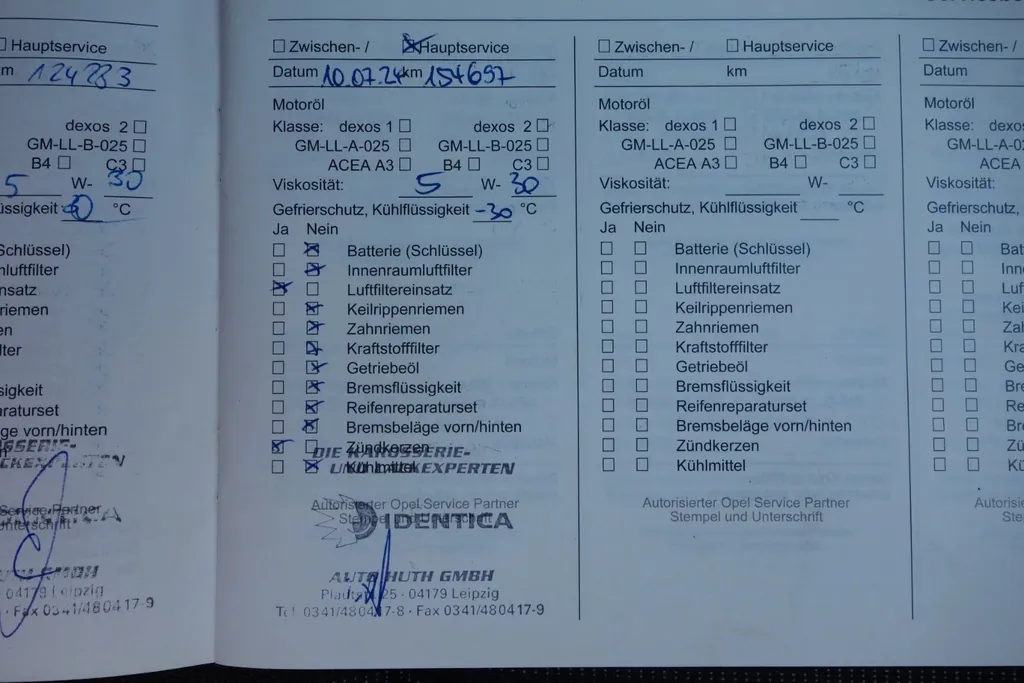 Hauptservice
m 124283
dexos 2
GM-LL-B-025
B4 C3
5 W- 30
üssigkeit -30 °C
Schlüssel)
mluftfilter
insatz
riemen
en
lter
sigkeit
araturset
äge vorn/hinten
SSERIE-
CKEXPERTEN
Service Partner
Unterschrift
UTH GMBH
04179 Leipzig
· Fax 0341/480417-9
Zwischen- / Hauptservice
Datum 10.07.24 km 154697
Motoröl
Klasse: dexos 1 dexos 2
GM-LL-A-025 GM-LL-B-025
ACEA A3 B4 C3
Viskosität: 5 W- 30
Gefrierschutz, Kühlflüssigkeit -30 °C
Ja Nein
Batterie (Schlüssel)
Innenraumluftfilter
Luftfiltereinsatz
Keilrippenriemen
Zahnriemen
Kraftstofffilter
Getriebeöl
Bremsflüssigkeit
Reifenreparaturset
Bremsbeläge vorn/hinten
Zündkerzen
DIE KAROSSERIE-
Kühlmittel
UND LACKEXPERTEN
Autorisierter Opel Service Partner
Stempel und Unterschrift
IDENTICA
AUTO HUTH GMBH
25 · 04179 Leipzig
Tel. 0341/480417-8 · Fax 0341/480417-9
Zwischen- / Hauptservice
Datum km
Motoröl
Klasse: dexos 1 dexos 2
GM-LL-A-025 GM-LL-B-025
ACEA A3 B4 C3
Viskosität: W-
Gefrierschutz, Kühlflüssigkeit °C
Ja Nein
Batterie (Schlüssel)
Innenraumluftfilter
Luftfiltereinsatz
Keilrippenriemen
Zahnriemen
Kraftstofffilter
Getriebeöl
Bremsflüssigkeit
Reifenreparaturset
Bremsbeläge vorn/hinten
Zündkerzen
Kühlmittel
Autorisierter Opel Service Partner
Stempel und Unterschrift
Zwischen- /
Datum
Motoröl
Klasse: dexo
GM-LL-A-02
ACEA
Viskosität:
Gefrierschutz,
Ja Nein
Batt
Inne
Luf
Kei
Zal
Kra
Ge
Bre
Re
Br
Zü
Kü
Autorisi
Ste